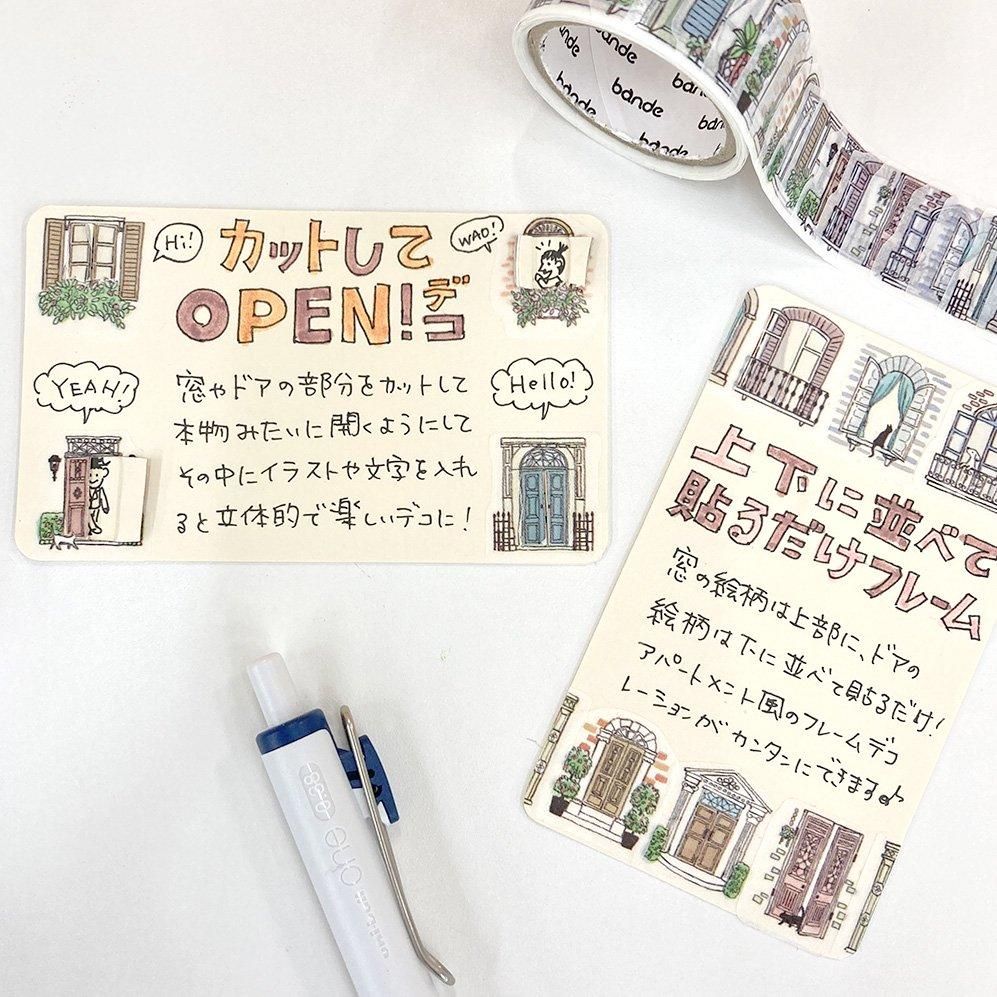 bande
bande
bande
bande
Hi!
カットして
WAO!
OPEN!デコ
YEAH!
Hello!
窓やドアの部分をカットして
本物みたいに開くようにして
その中にイラストや文字を入れ
ると立体的で楽しいデコに!
上下に並べて
貼るだけフレーム
窓の絵柄は上部に、ドアの
絵柄は下に並べて貼るだけ!
アパートメント風のフレームデコ
レーションがカンタンにできます♪
uni-ball one